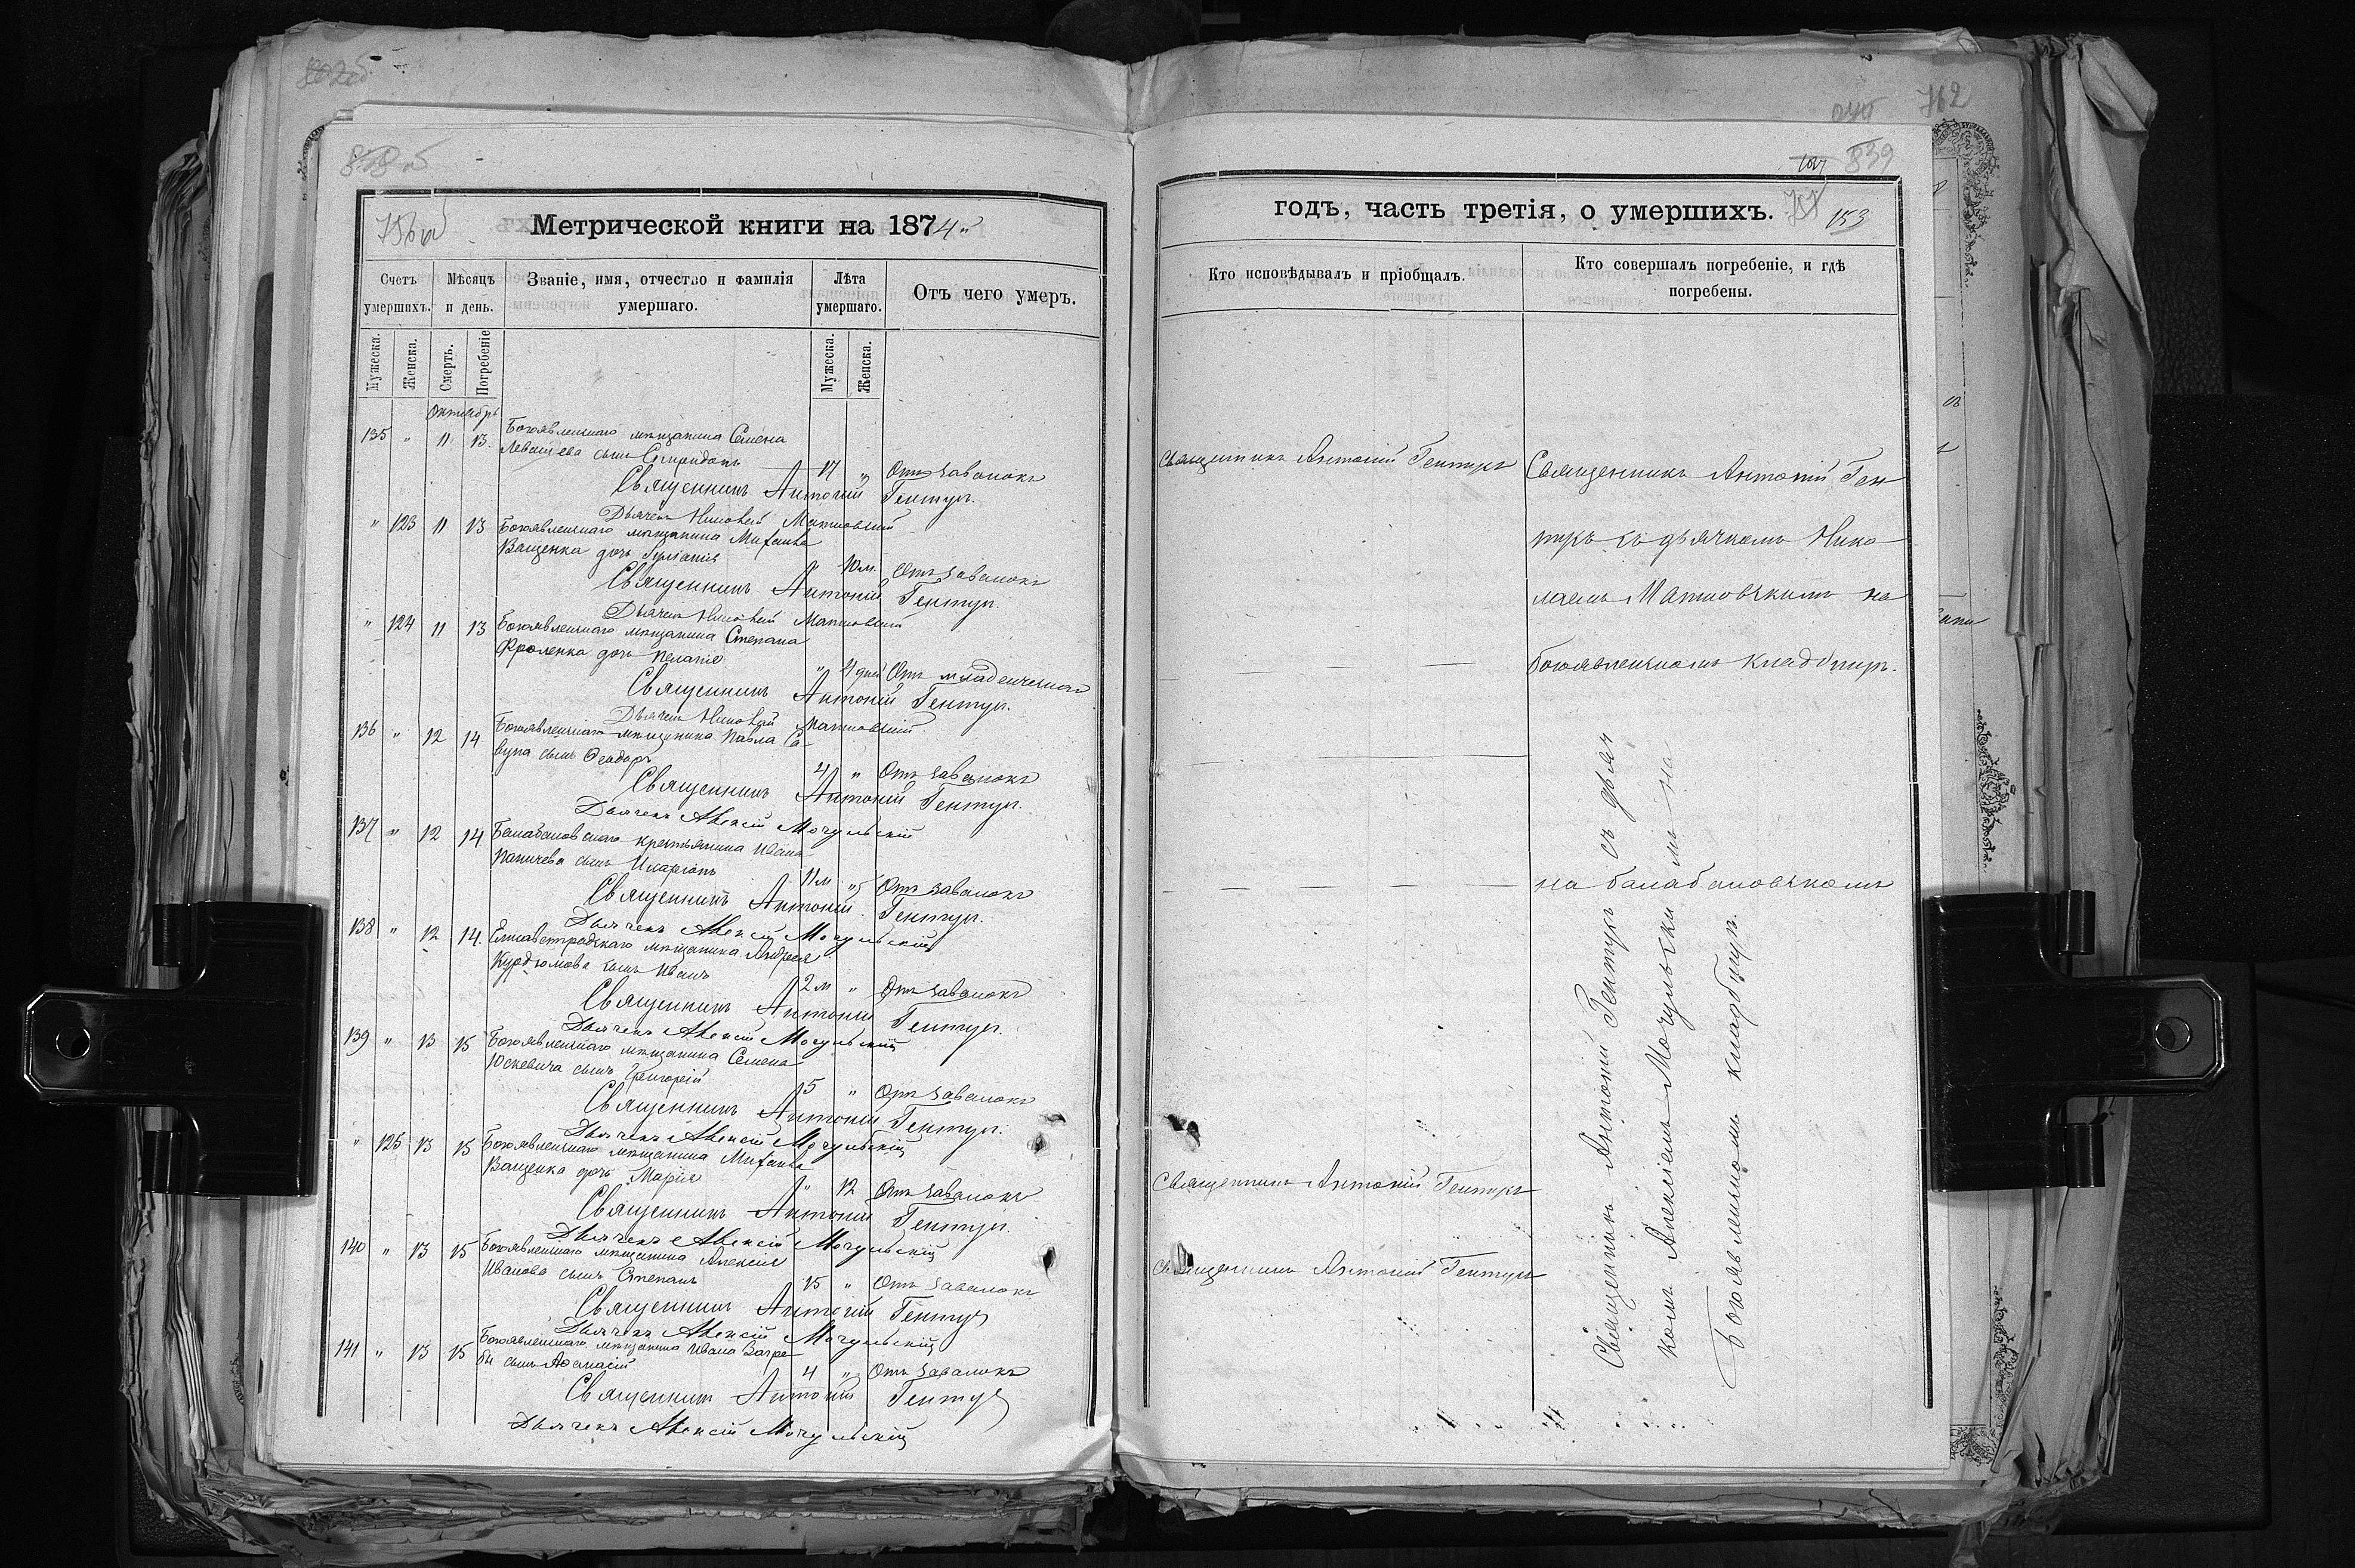 762
839
Метрической книги на 1874"
годъ, часть третія, о умершихъ.
153
Счетъ умершихъ.
Мѣсяцъ и день.
Званіе, имя, отчество и фамилія умершаго.
Лѣта умершаго.
Отъ чего умеръ.
Кто исповѣдывалъ и пріобщалъ.
Кто совершалъ погребеніе, и гдѣ погребены.
Мужеска.
Женска.
Смерть.
Погребеніе
Мужеска.
Женска.
Октябрь
135 " 11 13. Богоявленскаго мѣщанина Семена
Левашева сынъ Спиридонъ 17 " Отъ завалокъ
Священникъ Антоній Гентуръ
Дьячекъ Николай Матковскій
" 123 11 13 Богоявленскаго мѣщанина Михаила
Ващенка дочь 10 м. Отъ завалокъ
Священникъ Антоній Гентуръ.
Дьячекъ Николай Матковскій
" 124 11 13 Богоявленскаго мѣщанина Степана
Фроленка дочь Пелагія " 4 дней Отъ младенческой
Священникъ Антоній Гентуръ.
Дьячекъ Николай Матковскій
136 " 12 14 Богоявленскаго мѣщанина Павла Са-
вула сынъ Ѳеодоръ 4 " Отъ завалокъ
Священникъ Антоній Гентуръ
Дьячекъ Алексій Мочульскій
137 " 12 14 Балабановскаго крестьянина Ивана
Паничева сынъ Иларіонъ 11 м " Отъ завалокъ
Священникъ Антоній Гентуръ.
Дьячекъ Алексій Мочульскій
138 " 12 14. Елисаветградскаго мѣщанина Андрея
Курдюмова сынъ Иванъ 2 м " Отъ завалокъ
Священникъ Антоній Гентуръ.
Дьячекъ Алексій Мочульскій
139 " 13 15 Богоявленскаго мѣщанина Семена
Юскевича сынъ Григорій 5 " Отъ завалокъ
Священникъ Антоній Гентуръ.
Дьячекъ Алексій Мочульскій
" 125 13 15 Богоявленскаго мѣщанина Михаила
Ващенка дочь Марія " 12 Отъ завалокъ
Священникъ Антоній Гентуръ.
Дьячекъ Алексій Мочульскій
140 " 13 15 Богоявленскаго мѣщанина Алексія
Иванова сынъ Степанъ 15 " Отъ завалокъ
Священникъ Антоній Гентуръ
Дьячекъ Алексій Мочульскій
141 " 13 15 Богоявленскаго мѣщанина Ивана Загре-
бы сынъ Аѳанасій 4 " Отъ завалокъ
Священникъ Антоній Гентуръ
Дьячекъ Алексій Мочульскій
Священникъ Антоній Гентуръ
Священникъ Антоній Ген
туръ съ дьячкомъ Нико
лаемъ Матковскимъ на
богоявленскомъ кладбищѣ.
на балабановскомъ
Священникъ Антоній Гентуръ съ дьяч
комъ Алексіемъ Мочульскимъ на
Богоявленскомъ кладбищѣ.
Священникъ Антоній Гентуръ
Священникъ Антоній Гентуръ